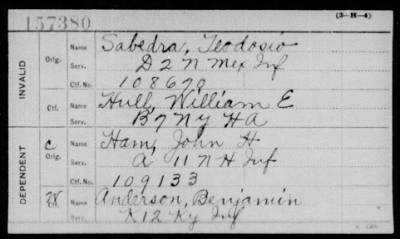 157380
(3-H-4)
INVALID
Orig. Name Sabedra, Teodosio
Serv. D 2 N Mex Inf
Ctf. No. 108670
Ctf. Name Hull, William E
Serv. B 7 N Y H A
DEPENDENT
C Orig. Name Ham, John H
Serv. A 11 N H Inf
Ctf. No. 109133
Ctf. Name Anderson, Benjamin
Serv. K 12 Ky Inf